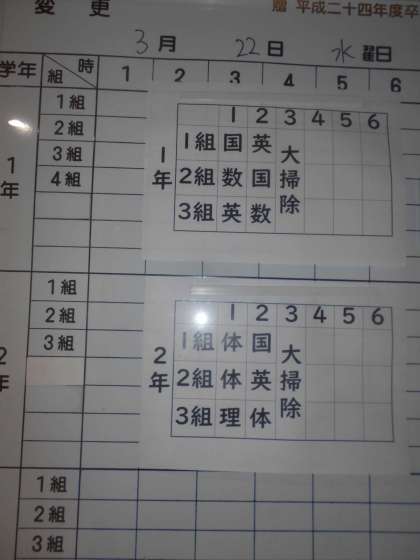 変更
贈 平成二十四年度卒
3月 22日 水曜日
学年 組 時 1 2 3 4 5 6
1年
1組
2組
3組
4組
1 2 3 4 5 6
1年
1組 国 英
2組 数 国
3組 英 数
大掃除
2年
1組
2組
3組
1 2 3 4 5 6
2年
1組 体 国
2組 体 英
3組 理 体
大掃除
1組
2組
3組